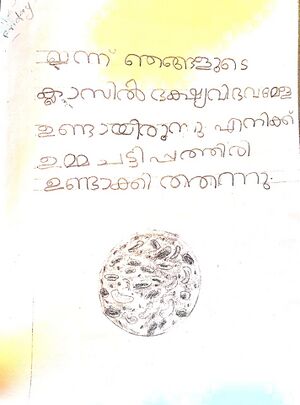 Friday
ഇന്ന് ഞങ്ങളുടെ
ക്ലാസിൽ ഭക്ഷ്യവിഭവമേള
ഉണ്ടായിരുന്നു എനിക്ക്
ഉമ്മ ചട്ടിപ്പത്തിരി
ഉണ്ടാക്കി തന്നു